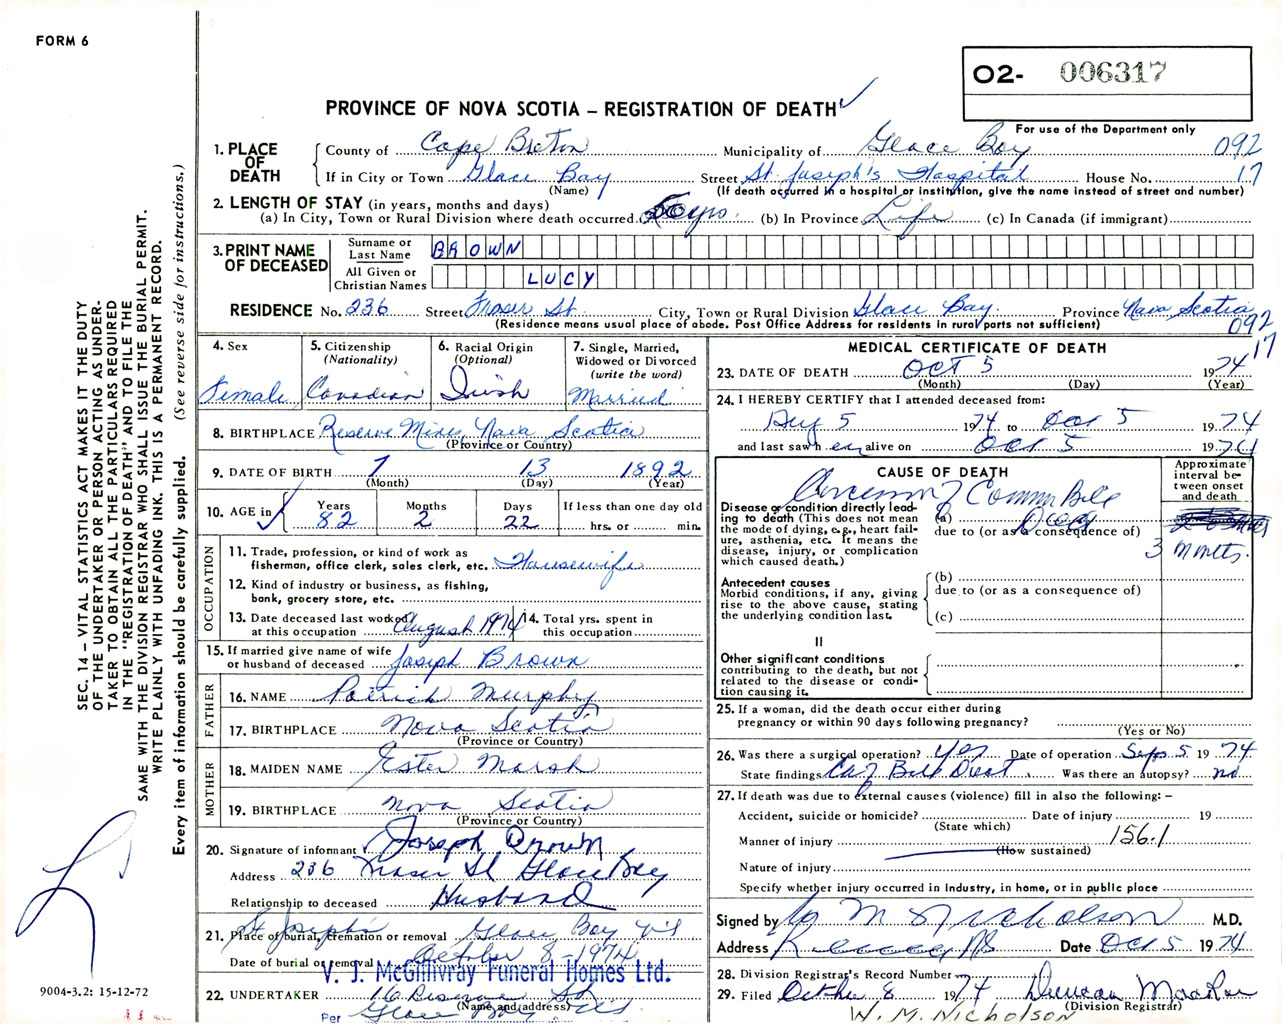 FORM 6
O2- 006317
PROVINCE OF NOVA SCOTIA – REGISTRATION OF DEATH
For use of the Department only
1. PLACE OF DEATH
County of Cape Breton Municipality of Glace Bay 092
If in City or Town Glace Bay Street St. Joseph's Hospital House No. 17
(Name) (If death occurred in a hospital or institution, give the name instead of street and number)
2. LENGTH OF STAY (in years, months and days)
(a) In City, Town or Rural Division where death occurred yrs. (b) In Province Life (c) In Canada (if immigrant)
3. PRINT NAME OF DECEASED
Surname or Last Name BROWN
All Given or Christian Names LUCY
RESIDENCE No. 236 Street Fraser St. City, Town or Rural Division Glace Bay Province Nova Scotia
(Residence means usual place of abode. Post Office Address for residents in rural parts not sufficient) 092
17
4. Sex
Female
5. Citizenship (Nationality)
Canadian
6. Racial Origin (Optional)
Irish
7. Single, Married, Widowed or Divorced (write the word)
Married
8. BIRTHPLACE Reserve Mines, Nova Scotia
(Province or Country)
9. DATE OF BIRTH 7 13 1892
(Month) (Day) (Year)
10. AGE in Years 82 Months 2 Days 22 If less than one day old hrs. or min.
OCCUPATION
11. Trade, profession, or kind of work as fisherman, office clerk, sales clerk, etc. Housewife
12. Kind of industry or business, as fishing, bank, grocery store, etc.
13. Date deceased last worked at this occupation August 1974
14. Total yrs. spent in this occupation
15. If married give name of wife or husband of deceased Joseph Brown
FATHER
16. NAME Patrick Murphy
17. BIRTHPLACE Nova Scotia
(Province or Country)
MOTHER
18. MAIDEN NAME Ester Marsh
19. BIRTHPLACE Nova Scotia
(Province or Country)
20. Signature of informant Joseph Brown
Address 236 Fraser St Glace Bay
Relationship to deceased Husband
21. Place of burial, cremation or removal St Joseph's Glace Bay N.S
Date of burial or removal October 8 - 1974
V. J. McGillivray Funeral Homes Ltd.
22. UNDERTAKER 16 Reserve St
(Name and address)
Per Glace Bay N.S
MEDICAL CERTIFICATE OF DEATH
23. DATE OF DEATH Oct 5 1974
(Month) (Day) (Year)
24. I HEREBY CERTIFY that I attended deceased from:
Aug 5 1974 to Oct 5 1974
and last saw her alive on Oct 5 1974
CAUSE OF DEATH
Approximate interval between onset and death
Disease or condition directly leading to death (This does not mean the mode of dying, e.g., heart failure, asthenia, etc. It means the disease, injury, or complication which caused death.)
(a) Common Bile Duct
due to (or as a consequence of)
3 months.
Antecedent causes
Morbid conditions, if any, giving rise to the above cause, stating the underlying condition last.
(b)
due to (or as a consequence of)
(c)
II
Other significant conditions contributing to the death, but not related to the disease or condition causing it.
25. If a woman, did the death occur either during pregnancy or within 90 days following pregnancy?
(Yes or No)
26. Was there a surgical operation? Yes Date of operation Sept 5 1974
State findings Ca of Bile Duct. Was there an autopsy? no
27. If death was due to external causes (violence) fill in also the following: –
Accident, suicide or homicide? Date of injury 19
(State which)
Manner of injury 156.1
(How sustained)
Nature of injury
Specify whether injury occurred in industry, in home, or in public place
Signed by M Nicholson M.D.
Address Date Oct 5 1974
28. Division Registrar's Record Number
29. Filed October 8 1974 Duncan
(Division Registrar)
W. M. NICHOLSON
SEC. 14 – VITAL STATISTICS ACT MAKES IT THE DUTY
OF THE UNDERTAKER OR PERSON ACTING AS UNDER-
TAKER TO OBTAIN ALL THE PARTICULARS REQUIRED
IN THE "REGISTRATION OF DEATH" AND TO FILE THE
SAME WITH THE DIVISION REGISTRAR WHO SHALL ISSUE THE BURIAL PERMIT.
WRITE PLAINLY WITH UNFADING INK. THIS IS A PERMANENT RECORD.
Every item of information should be carefully supplied. (See reverse side for instructions.)
9004-3.2: 15-12-72